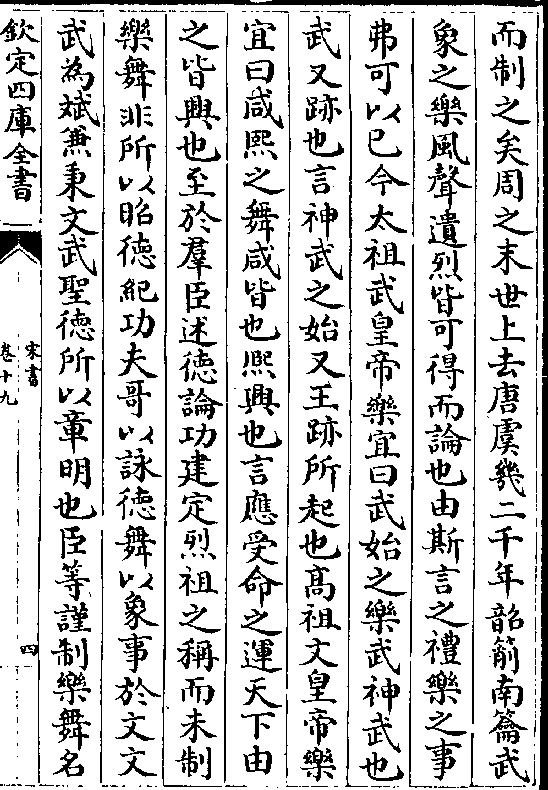 而制之矣周之末世上去唐虞幾二千年韶箾南籥武
象之樂風聲遺烈皆可得而論也由斯言之禮樂之事
弗可以已今太祖武皇帝樂宜曰武始之樂武神武也
武又跡也言神武之始又王跡所起也髙祖文皇帝樂
宜曰咸熙之舞咸皆也熙興也言應受命之運天下由
之皆興也至於羣臣述徳論功建定烈祖之稱而未制
樂舞非所以昭徳紀功夫哥以詠徳舞以象事於文文
武為斌兼秉文武聖徳所以章明也臣等謹制樂舞名
欽定四庫全書
宋書
卷十九
四